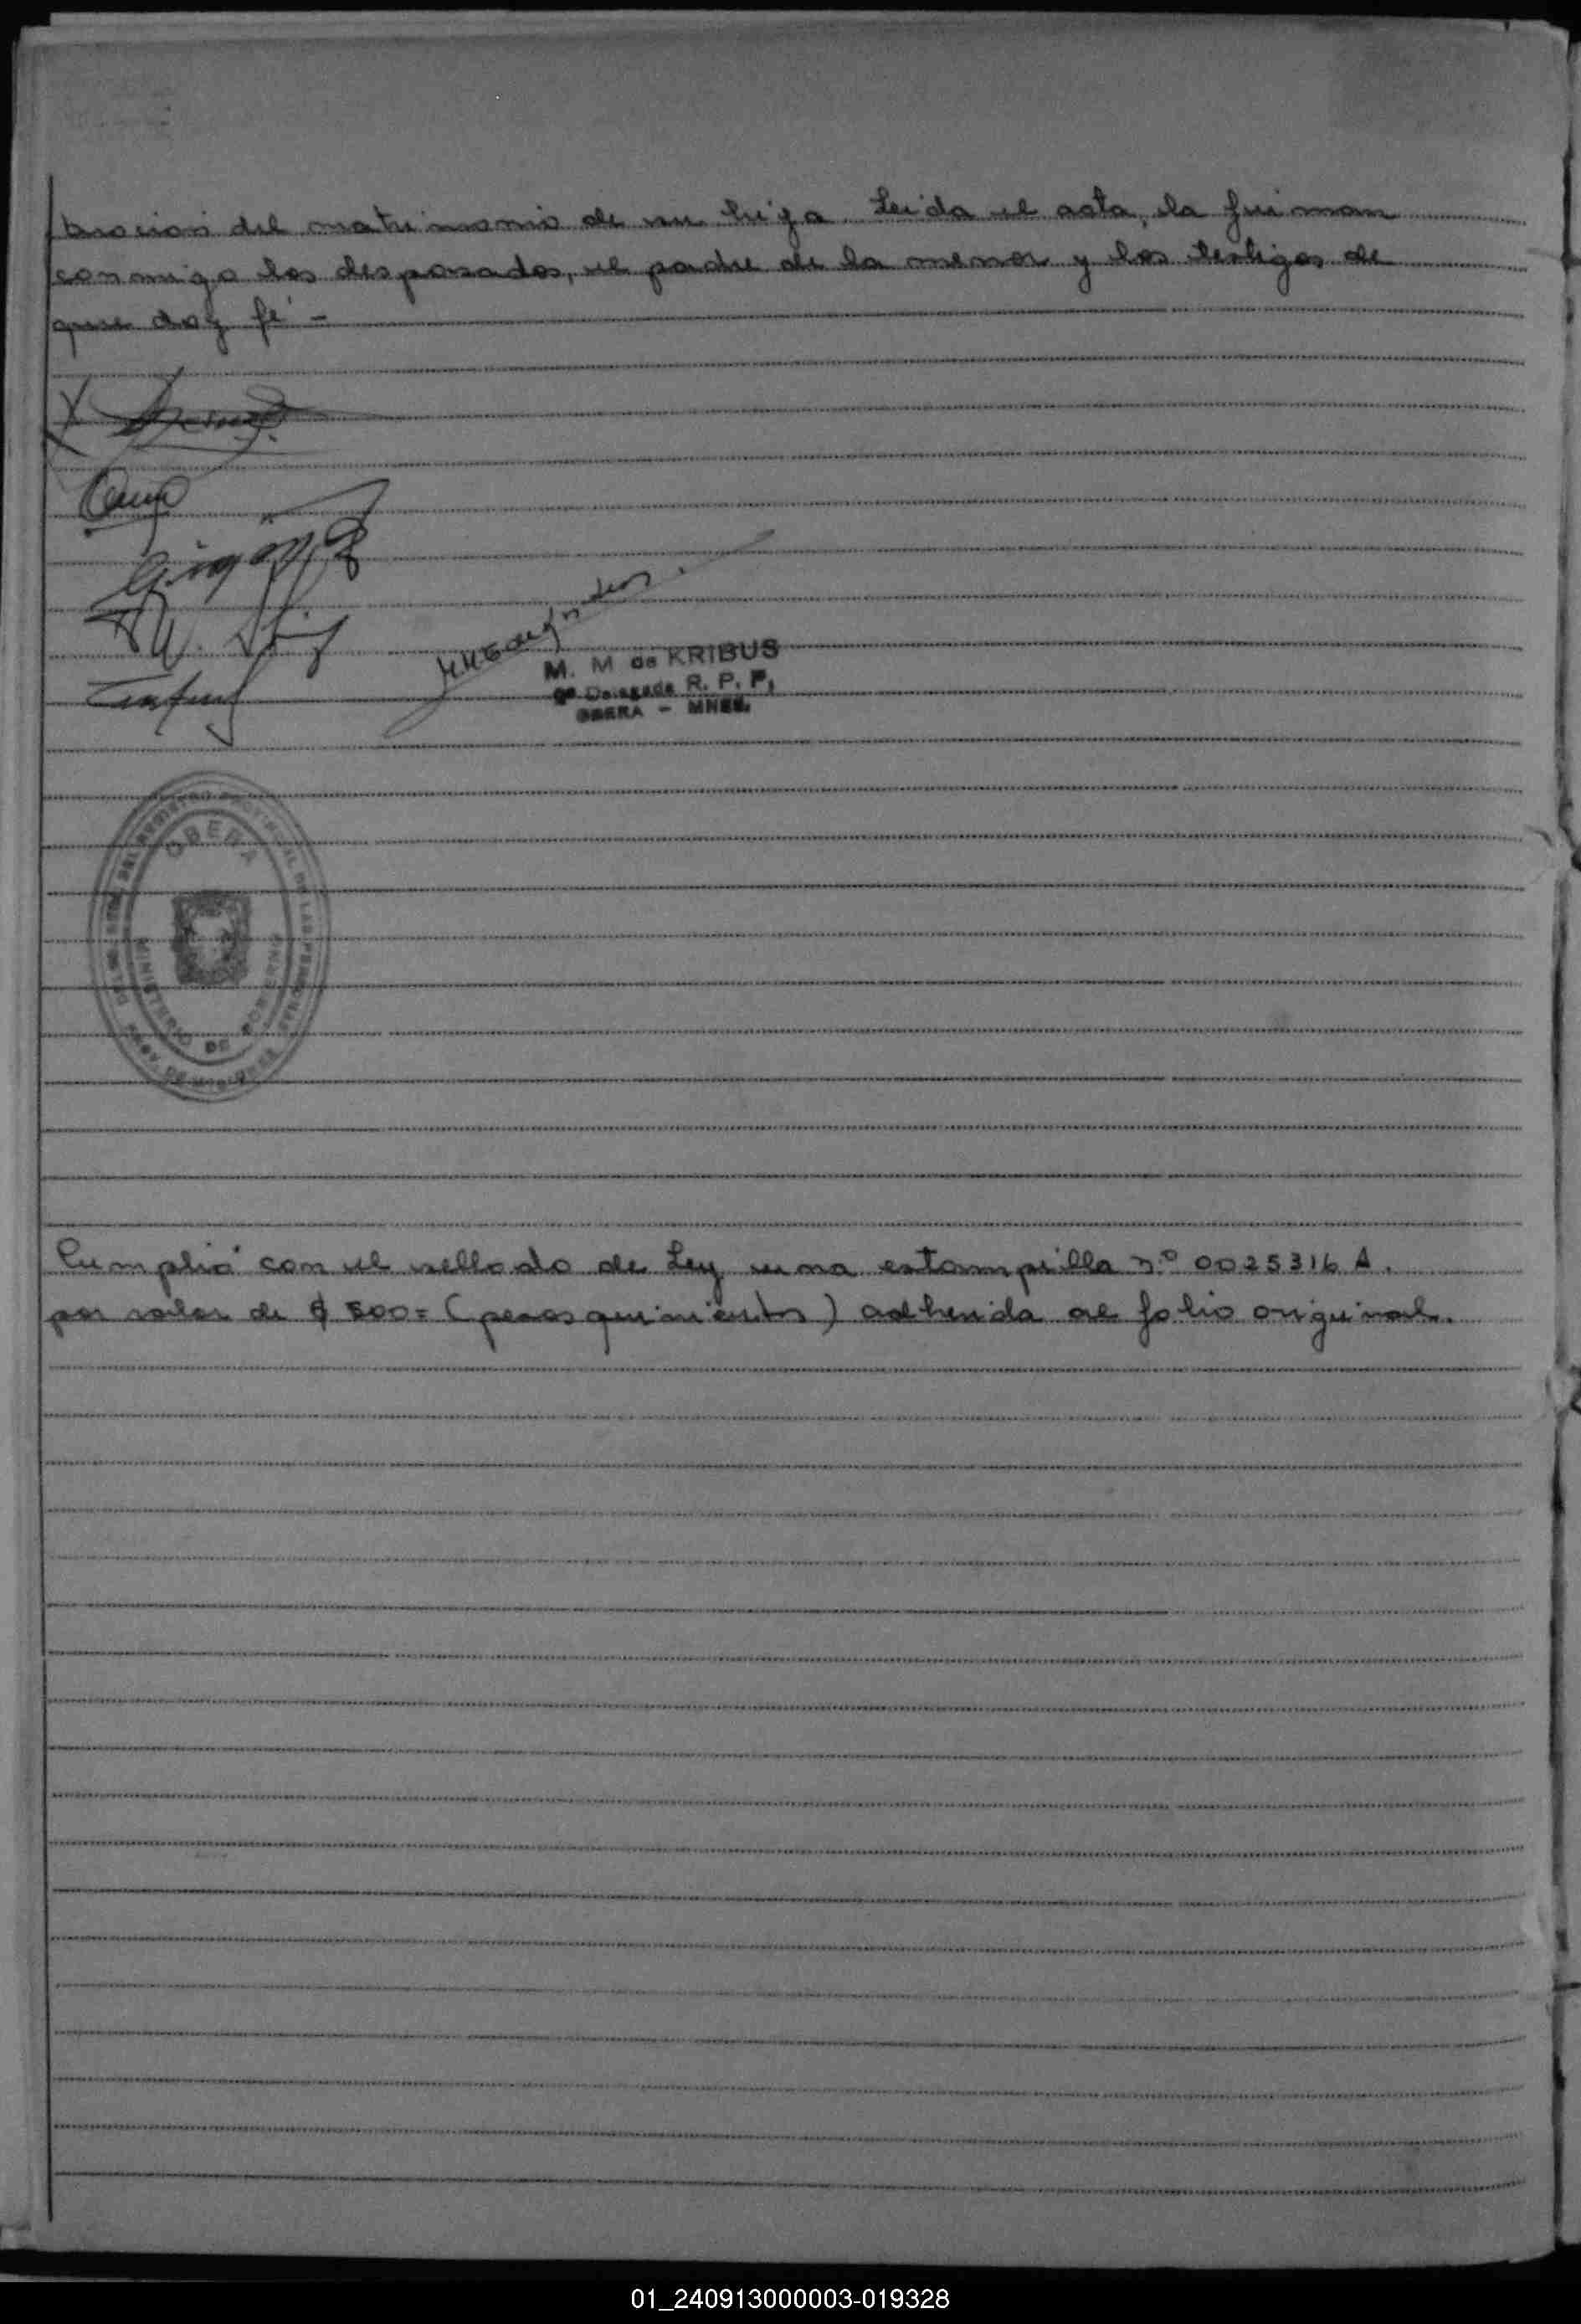 bración del matrimonio de su hija. Leida el acta, la firman
conmigo los desposados, el padre de la menor y los testigos de
que doy fé -
X
M. M de KRIBUS
Delegada R. P. P.
OBERA - MNES.
OBERA
MINISTERIO DE GOBIERNO
Cumplió con el sellado de Ley una estampilla nº 0025316 A.
por valor de $ 500= (pesos quinientos) adherida al folio original.
01_240913000003-019328